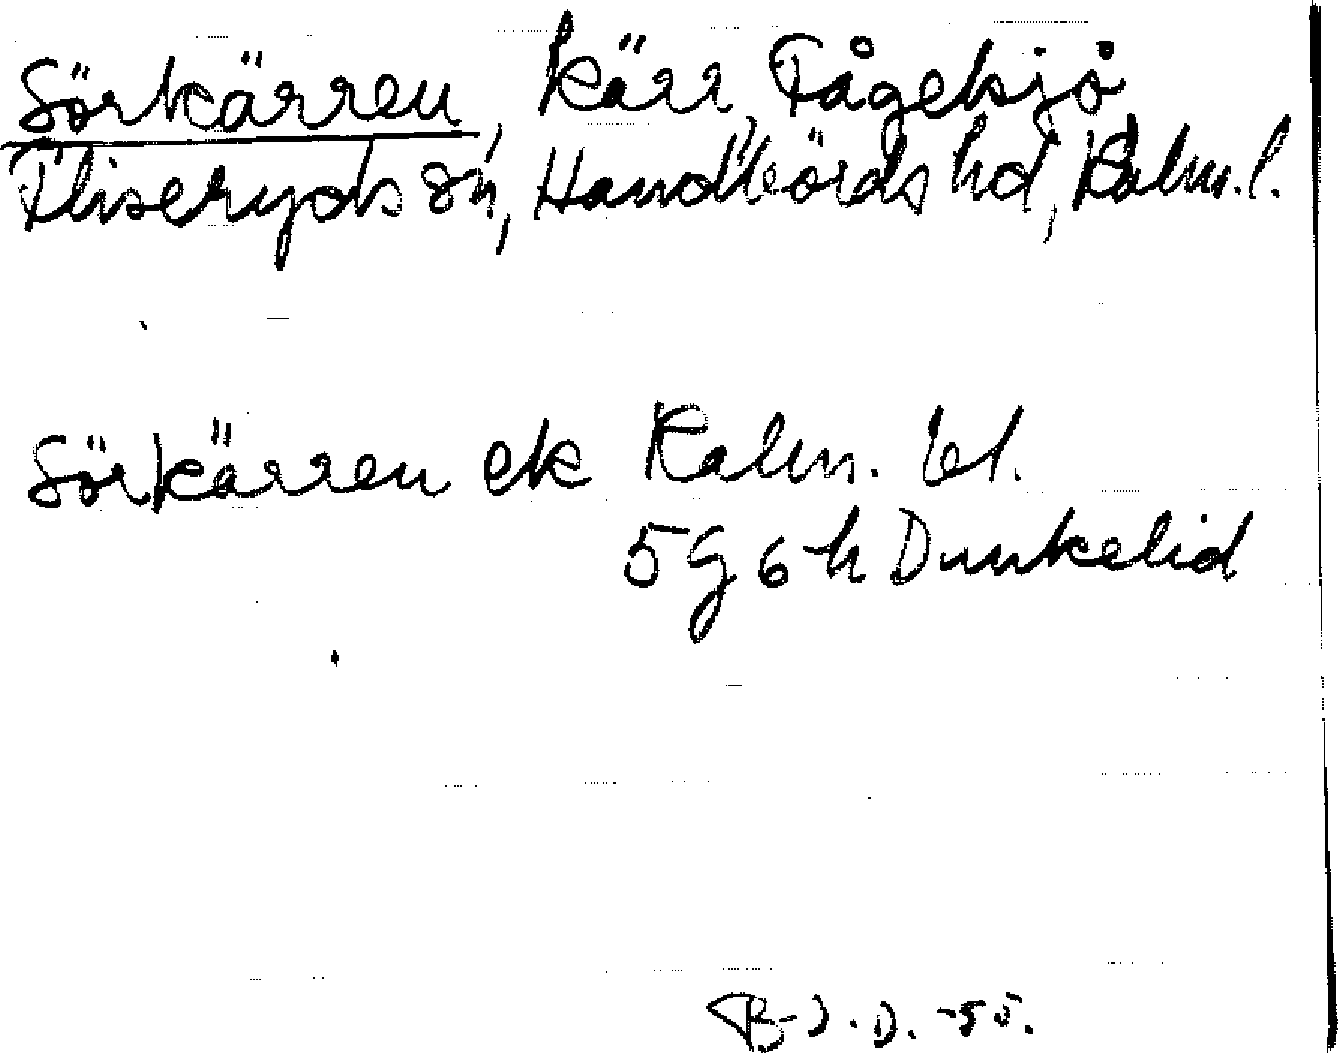 Sörkärren, kärr, Fågelsjö
Fliseryds sn, Handbörds hd, Kalm. l.
Sörkärren ek Kalm. bl.
5 G 6 h Dunkelid
B-J. D. -55.